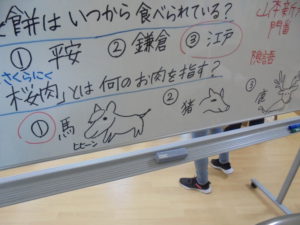 餅は いつから 食べられている?
① 平安 ② 鎌倉 ③ 江戸
さくらにく
「桜肉」とは 何のお肉を指す?
① 馬 ② 猪 ③ 鹿
ヒヒーン
隠語